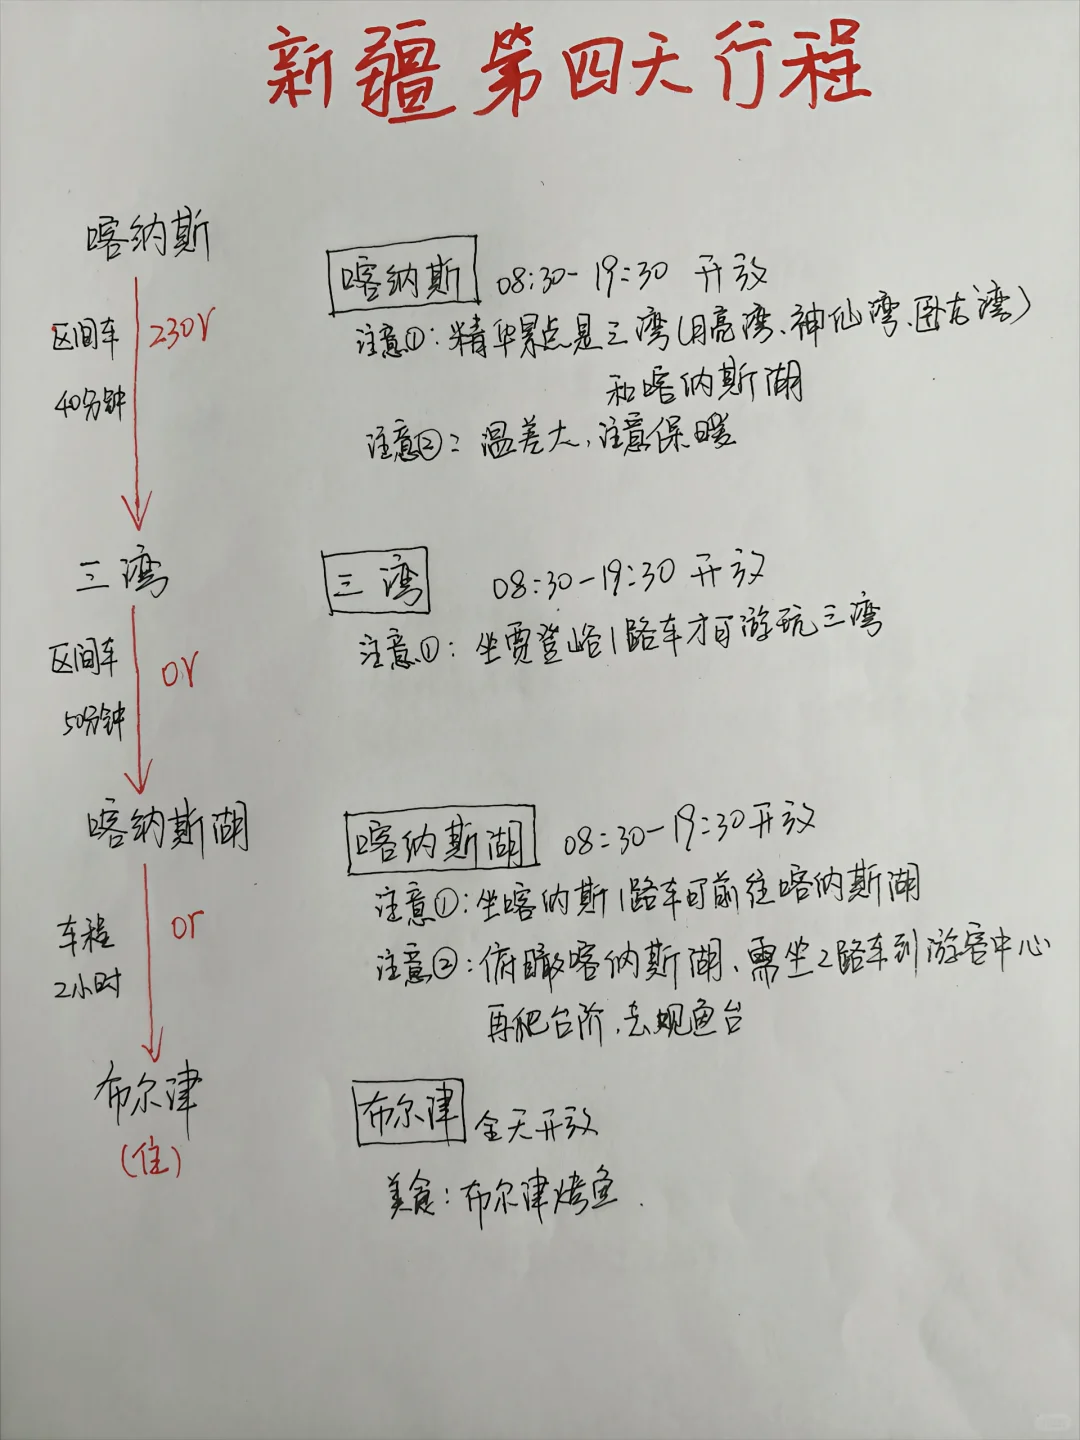 新疆第四天行程
喀纳斯
区间车 230r
40分钟
三湾
区间车 0r
50分钟
喀纳斯湖
车程 0r
2小时
布尔津
(住)
喀纳斯 08:30-19:30 开放
注意①:精华景点是三湾(月亮湾、神仙湾、卧龙湾)
和喀纳斯湖
注意②:温差大,注意保暖
三湾 08:30-19:30 开放
注意①:坐贾登峪1路车才可游玩三湾
喀纳斯湖 08:30-19:30开放
注意①:坐喀纳斯1路车可前往喀纳斯湖
注意②:俯瞰喀纳斯湖、需坐2路车到游客中心
再爬台阶,去观鱼台
布尔津 全天开放
美食:布尔津烤鱼.